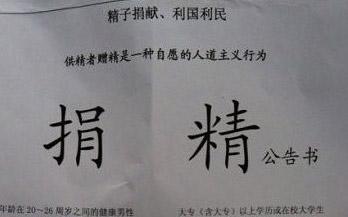 精子捐献、利国利民
供精者赠精是一种自愿的人道主义行为
捐 精 公告书
年龄在20～26周岁之间的健康男性 大专（含大专）以上学历或在校大学生